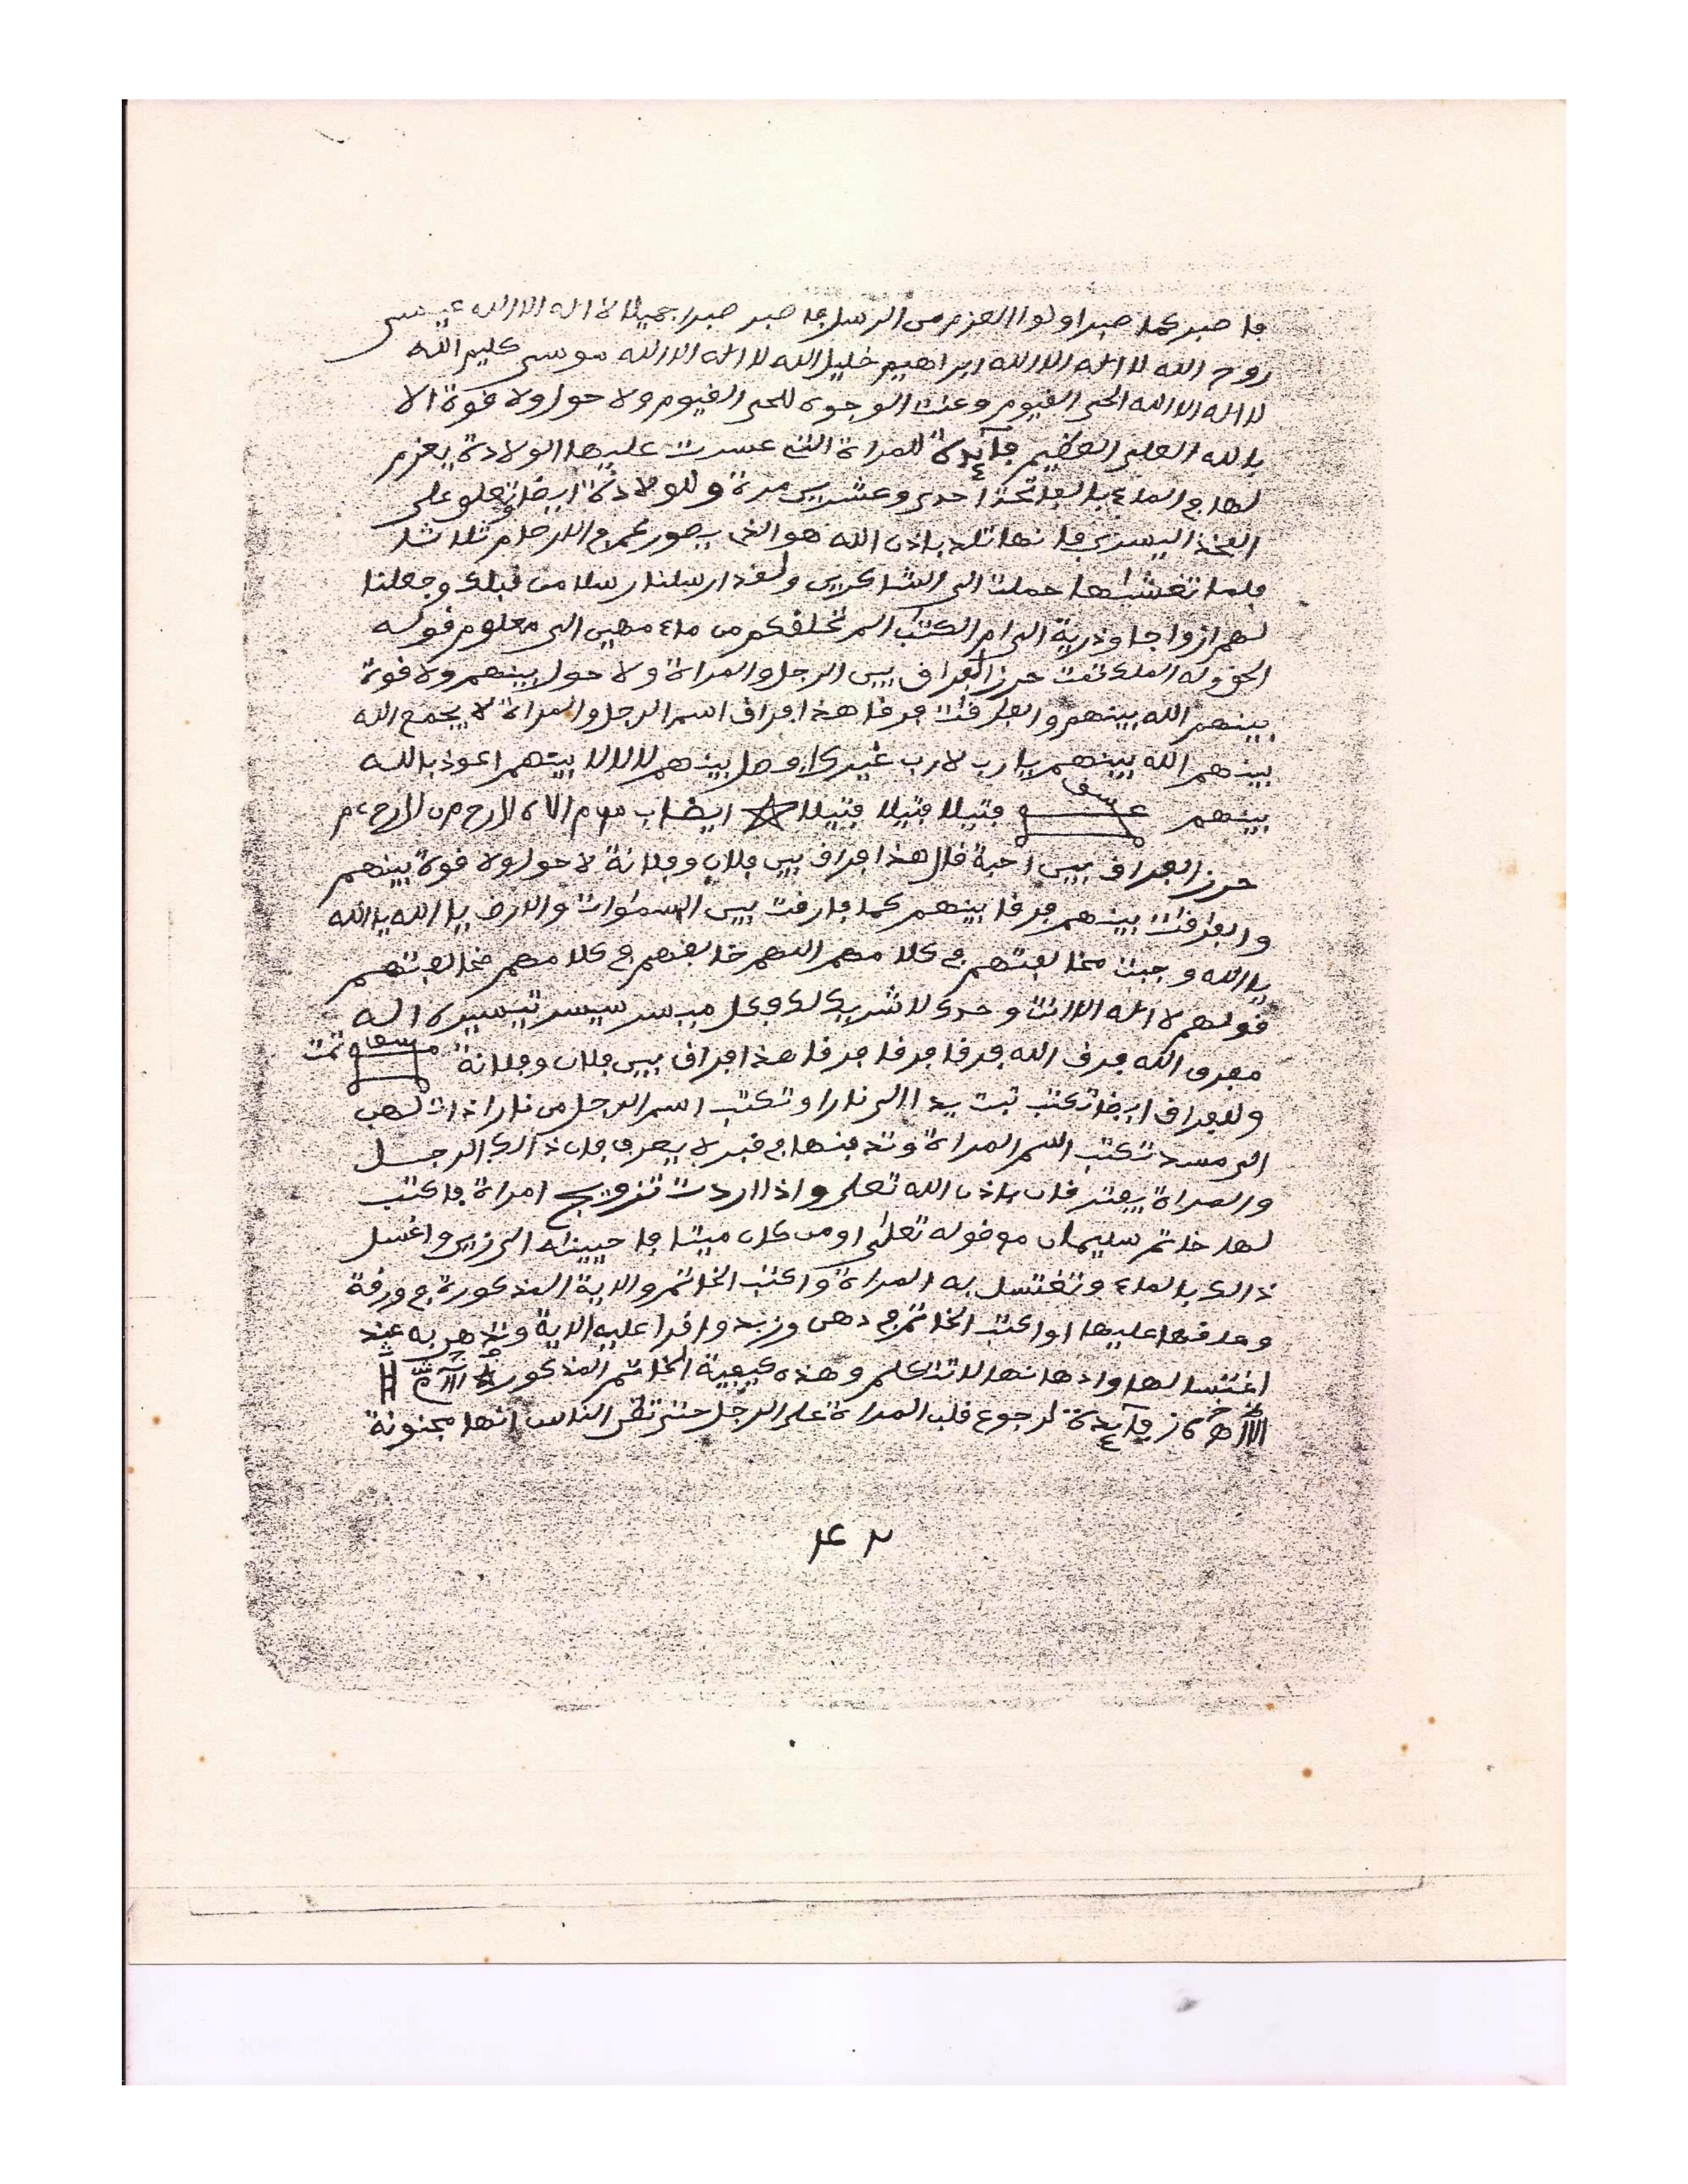 فاصبر كما صبر اولوا العزم من الرسل فاصبر صبرا جميلا لا اله الا الله عيسى
روح الله لا اله الا الله ابراهيم خليل الله لا اله الا الله موسى كليم الله
لا اله الا الله الحي القيوم وعنت الوجوه للحي القيوم ولا حول ولا قوة الا
بالله العلي العظيم فآيدة للمراة التي عسرت عليها الولادة يعزم
لها في الماء بالفاتحة احدى وعشرين مرة وللولادة ايضا تعلق على
الفخذ اليسرى فانها تلد باذن الله هو الذي يصوركم في الارحام ثلاثا
فلما تغشيها حملت الى الشاكرين ولقد ارسلنا رسلا من قبلك وجعلنا
لهم ازواجا وذرية الى ام الكتب الم نخلقكم من ماء مهين الى معلوم قوله
الحق وله الملك تمت حرز الفراق بين الرجل والمراة ولا حول بينهم ولا قوة
بينهم الله بينهم والفارقات فرقا هذا فراق اسم الرجل والمراة لا يجمع الله
بينهم الله بينهم يا رب لا رب غيرك وصل بينهم لا لا لا بينهم اعوذ بالله
بينهم فتيلا فتيلا فتيلا ايضا
حرز الفراق بين احبة قال هذا فراق بين فلان وفلانة لا حول ولا قوة بينهم
والفارقات بينهم فرقا بينهم كما فارقت بين السموات والارض يا الله يا الله
يا الله وجبت مخالفتهم في كلامهم اللهم خالفهم في كلامهم مخالفتهم
قولهم لا اله الا انت وحدك لا شريك لك وكل ميسر سيسر تيسيره اله
مفرق الله فرق الله فرقا فرقا فرقا هذا فراق بين فلان وفلانة تمت
وللفراق ايضا تكتب تبت يدا الى نارا وتكتب اسم الرجل من نارا ذات لهب
الى مسد تكتب اسم المراة وتدفنها في قبر لا يعرف فان ذالك الرجل
والمراة يفترقان باذن الله تعلى واذا اردت تزويج امراة فاكتب
لها خاتم سليمان مع قوله تعلى او من كان ميتا فاحيينه الى زين واغسل
ذالك بالماء وتغتسل به المراة واكتب الخاتم والاية المذكورة في ورقة
وعلقها عليها او اكتب الخاتم في دهن وزبد واقرا عليه الاية وتدهن به عند
اغتسالها وادهانها لا تتكلم وهذه كيفية الخاتم المذكور
فآيدة لرجوع قلب المراة على الرجل حتى تظن الناس انها مجنونة